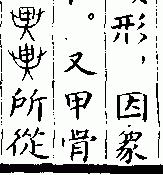 形，因象
。又甲骨
所從